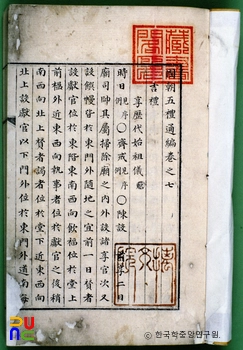 國朝五禮通編卷之七
吉禮
享歷代始祖儀
時日見序例○齋戒見序例○陳設
廟司帥其屬掃除廟之內外設諸享官次又
設饌幔皆於東門外隨地之宜前一日贊者
設獻官位於東階東南西向飮福位於堂上
前楹外近東西向執事者位於獻官之後稍
南西向北上贊者謁者位於堂下近東西向
北上設獻官以下門外位於東門外道南每
ⓒ 한국학중앙연구원